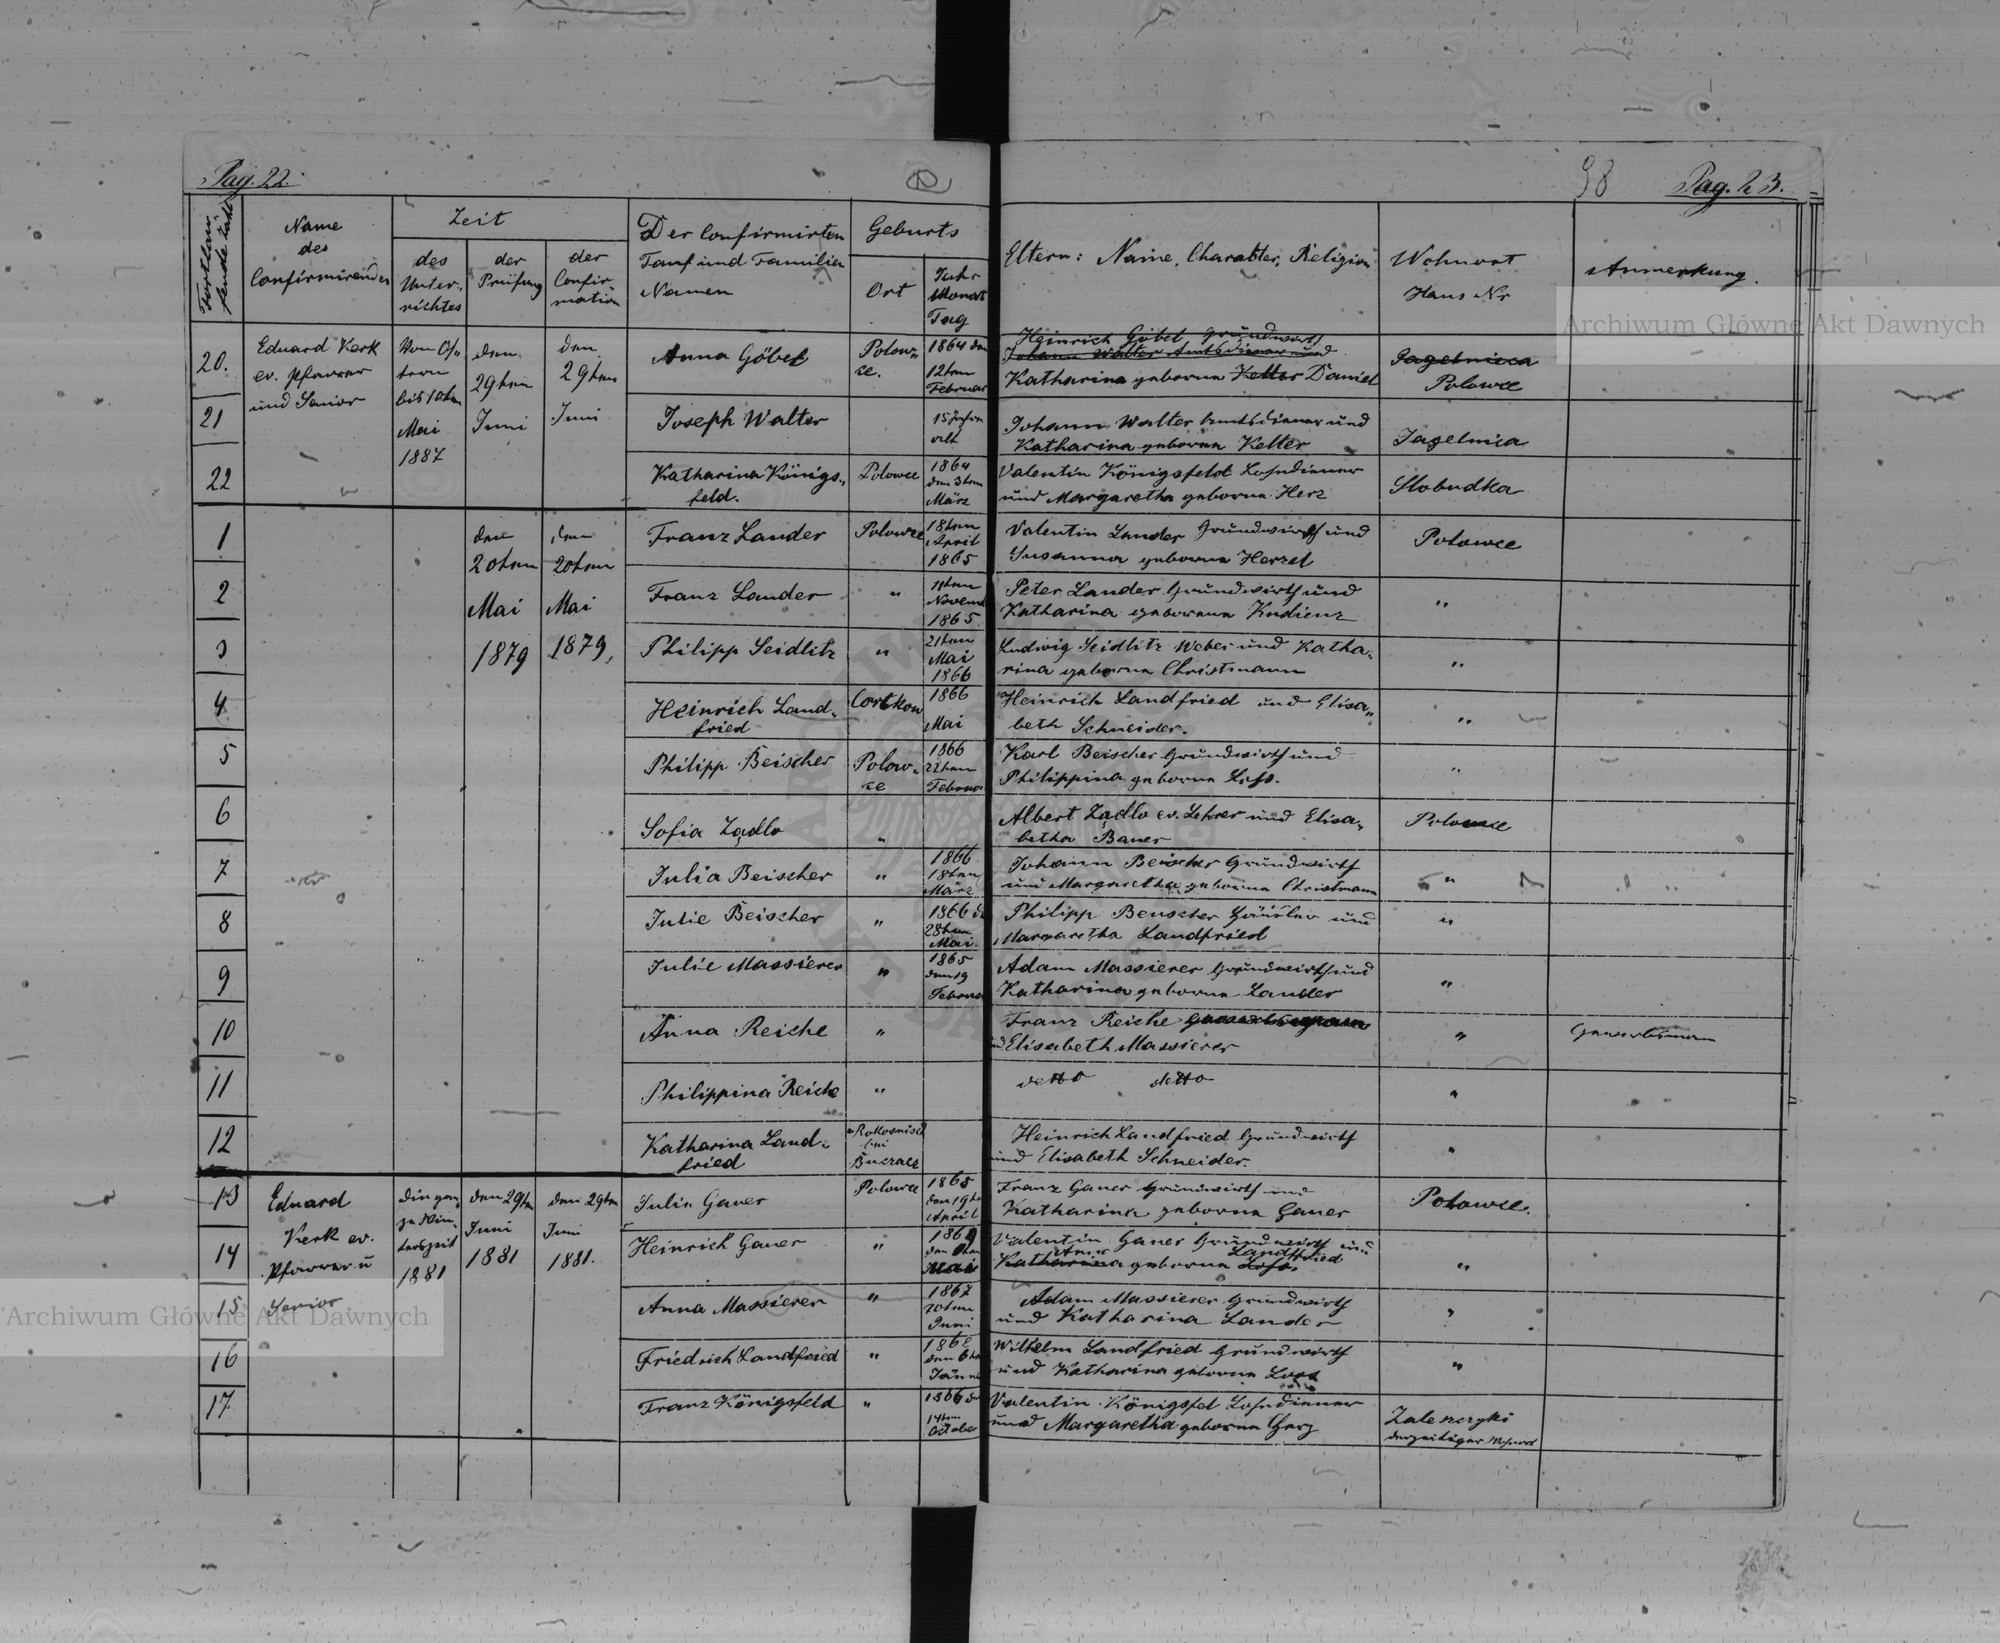 Pag. 22.
98 Pag. 23.
Fortlaufende Zahl
Name des Confirmirenden
Zeit
des Unterrichtes
der Prüfung
der Confirmation
Der Confirmirten Tauf und Familien Namen
Geburts
Ort
Jahr Monat Tag
Eltern: Name, Charakter, Religion
Wohnort Haus Nr
Anmerkung.
20.
Eduard Kerk
ev. Pfarrer
und Senior
bis 10ten
Mai
1887
den
29ten
Juni
den
29ten
Juni
Anna Göbel
Polow-
ce.
1864 den
12ten
Februar
Heinrich Göbel Grundwirth
Johann Walter Amtsdiener und
Katharina geborene Keller Daniel
Jagelnica
Polowce
21
Joseph Walter
15 Jahre
alt
Johann Walter Amtsdiener und
Katharina geborene Keller
Jagelnica
22
Katharina Königs-
feld.
Polowce
1864
den 3ten
März
Valentin Königsfeld
und Margaretha geborne Herz
Slobudka
1
den
20ten
Mai
1879
den
20ten
Mai
1879,
Franz Lander
Polowce
18ten
April
1865
Valentin Lander Grundwirth und
Susanna geborne Herzel
Polowce
2
Franz Lander
"
11ten
Novem
1865
Peter Lander Grundwirth und
Katharina geborene
"
3
Philipp Seidlitz
"
21ten
Mai
1866
Ludwig Seidlitz Weber und Katha-
rina geborne Christmann
"
4
Heinrich Land-
fried
Cortkow
1866
Mai
Heinrich Landfried und Elisa-
beth Schneider.
"
5
Philipp Beischer
Polow-
ce
1866
22ten
Februar
Karl Beischer Grundwirth und
Philippina geborne
"
6
Sofia Żądło
"
Albert Żądło ev. Lehrer und Elisa-
betha Bauer
Polowce
7
Julia Beischer
"
1866
18ten
März
Johann Beischer Grundwirth
und Margaretha geborne Christmann
"
8
Julie Beischer
"
1866 den
28ten
Mai
Philipp Beuscher Häusler und
Margaretha Landfried
"
9
Julie Massierer
"
1865
den 19
Februar
Adam Massierer Grundwirth und
Katharina geborne Lander
"
10
Anna Reiche
"
Franz Reiche
und Elisabeth Massierer
"
Gewerbsmann
11
Philippina Reiche
"
detto detto
"
12
Katharina Land-
fried
bei
Buczacz
Heinrich Landfried Grundwirth
und Elisabeth Schneider.
"
13
Eduard
Kerk ev.
Pfarrer u
Senior
die gan-
ze Win-
terszeit
1881
den 29ten
Juni
1881
den 29ten
Juni
1881.
Julie Gauer
Polowce
1865
den 19ten
April
Franz Gauer Grundwirth und
Katharina geborne Gauer
Polowce.
14
Heinrich Gauer
"
Mai
Valentin Gauer Grundwirth und
Landfried
Katharina geborne
"
15
Anna Massierer
"
1867
20ten
Juni
Adam Massierer Grundwirth
und Katharina Lander
"
16
Friedrich Landfried
"
den 6ten
Wilhelm Landfried Grundwirth
und Katharina geborne
"
17
Franz Königsfeld
"
1866 den
14ten
October
Valentin Königsfel
und Margaretha geborne Herz
Zaleszczyki
derzeitiger Wohnort
Archiwum Główne Akt Dawnych
Archiwum Główne Akt Dawnych